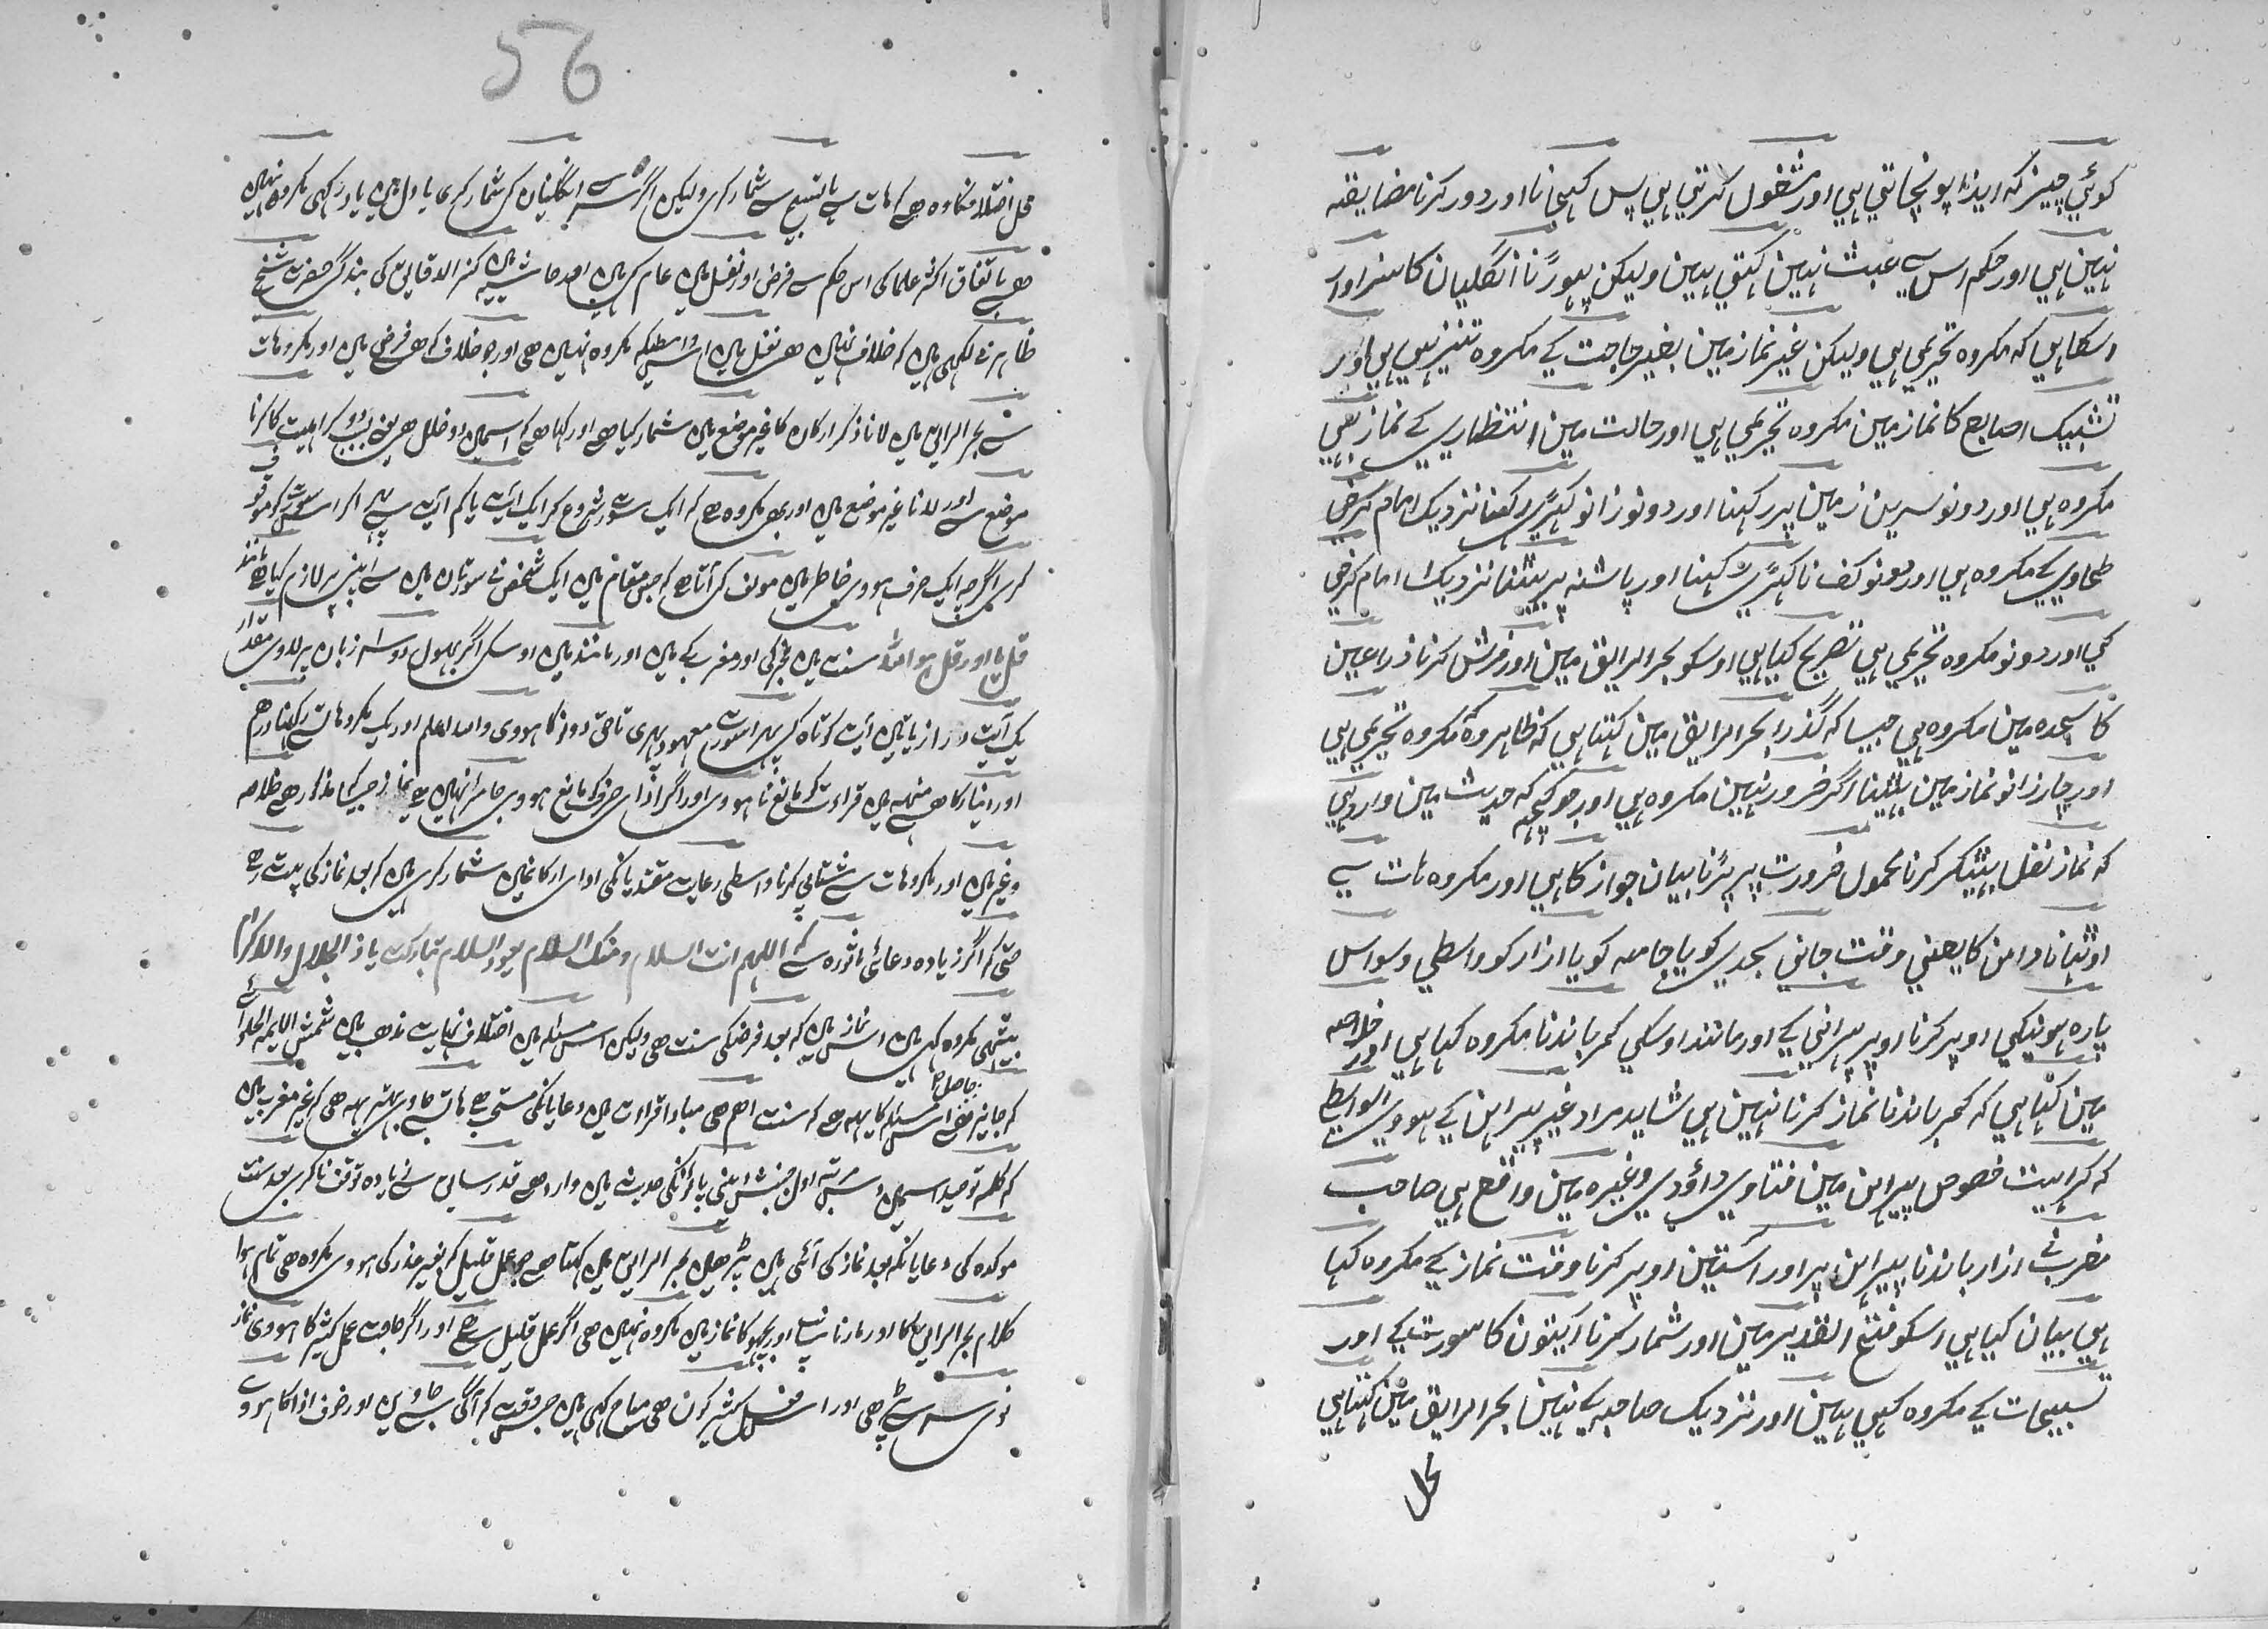 کوئی چیز کہ ایذا پونچاتی ہی اور مشغول کرتی ہی پس کہجانا اور دور کرنا مضایقہ
نہین ہی اور حکم اس سے عبث نہین کہتی ہین ولیکن پہوڑنا انگلیان کا سزاوار
اسکا ہی کہ مکروہ تحریمی ہی ولیکن غیر نماز مین بغیر حاجت کے مکروہ تنزیہی ہی اور
تشبیک اصابع کا نماز مین مکروہ تحریمی ہی اور حالت مین انتظاری کے نماز بھی
مکروہ ہی اور دونو سرین زمین پر رکہنا اور دونو زانو کہڑی رکہنا نزدیک امام کرخی
طحاوی کے مکروہ ہی اور دونو کف پا کہڑی رکہنا اور پاشنہ پر بیٹہنا نزدیک امام کرخی
کی اور دونو مکروہ تحریمی ہی تصریح کیا ہی اوسکو بحر الرایق مین اور فرش کرنا ذراعین
کا سجدہ مین مکروہ ہی جیسا کہ گذرا بحر الرایق مین کہتا ہی کہ ظاہر وہ مکروہ تحریمی ہی
اور چار زانو نماز مین بیٹہنا اگر ضرور نہین مکروہ ہی اور جو کچہہ کہ حدیث مین وارد ہی
کہ نماز نفل بیٹہکر کرنا محمول ضرورت پر پڑنا بیان جواز کا ہی اور مکروہات سے
اوٹہانا دامن کا یعنی وقت جانی سجدی کو یا جامہ کو یا ازار کو واسطی وسواس
پارہ ہونیکی اوپر کرنا اوپر پیراہن کے اور مانند اوسکی کمر باندنا مکروہ کہا ہی اور خلاصہ
مین کہا ہی کہ کمر باندنا نماز کرنا نہین ہی شاید مراد غیر پیراہن کے ہووی اسواسطی
کہ کراہیت خصوص پیراہن مین فتاوی داؤدی وغیرہ مین واقع ہی صاحب
مضرب نے ازار باندنا پیراہن پر اور آستین اوپر کرنا وقت نماز کے مکروہ کہا
ہی بیان کیا ہی اسکو فتح القدیر مین اور شمار کرنا آیتون کا سورت کے اور
تسبیحات کے مکروہ کہی ہین اور نزدیک صاحبین کے نہین بحر الرایق مین کہتا ہی
محل
56
محل اختلاف کا وہ ہے کہ ہات سے یا تسبیح سے شمار کری ولیکن اگر سر سے انگلیان کی شمار کری یا دل مین یاد رکہی مکروہ نہین
ہے باتفاق اکثر علما کی اس حکم سے فرض اور نفل مین عام کی ہین اور حاشیہ مین کنز الدقایق کی بندگی حضرت شیخ
ظاہر نے لکہی ہین کہ خلاف نہین ہے نفل مین اسواسطیکہ مکروہ نہین ہی اور جو خلاف کہ ہے فرض مین اور مکروہات
سے بحر الرایق مین لانا ذکر ارکان کا غیر موضع مین شمار کیا ہے اور کہا ہے کہ اسمین دو خلل ہے یعنی دو کراہیت کا کرنا
موضع سے اور لانا غیر موضع مین اور یہی مکروہ ہے کہ ایک سورت شروع کر ایک آیت یا کم آیت سے پہر اگر اس سورت کو موقوف
کری اگرچہ ایک حرف ہووی خاطر مین مولف کی آتا ہے کہ جس مقام مین ایک شخص نے سورتان مین سے اپنی پر لازم کیا ہے مانند
قل یا اور قل ہو اللہ سنت مین فجر کی اور مغرب کے مین اور مانند مین اوسکی اگر بہول دوسرا زبان پر لاوی مقدار
یک آیت دراز یا تین آیت کوتاہ کی پہر اسورت معہود پہری تاحق دونو کا ہووی واللہ اعلم اور یک مکروہات رکہنا درہم
اور دینار کا ہے منہہ مین قراءت کو مانع نا ہووی اور اگر اداے حرف کو مانع ہووی جائز نہین ہے نماز جیسا کہ مذکور ہے خلاصہ
وغیرہ مین اور مکروہات سے شتابی کرنا واسطی رعایت مقتدیانکی اداے ارکانمین شمار کری ہین کہ بعد نماز کی بہت رہے
حتی کہ اگر زیادہ دعائی ماثورہ سے کہ اللہم انت السلام و منک السلام یعود السلام تبارکت یا ذا الجلال والاکرام
بیٹہی مکروہ کہی ہین اس نماز مین کہ بعد فرضکی سنت ہی ولیکن اس مسئلہ مین اختلاف نہایت مذہب مین شمس الایمہ الحلوائی
کہ جائز رکہے حاصل اس مسئلہ کا یہہ ہے کہ سنت اہم ہی مبادا قراءت مین دعایانکی مستحب ہے ہات سے جاوی بہتر یہہ ہی کہ غیر مغرب مین
کہ کلمہ توحید اسمین دس مرتبہ اول جنبش دینی پانوکی حدیث مین وارد ہے قدر سالی سے زیادہ توقف نا کری بعد سنت
موکدہ کی دعایانکہ بعد نماز کی آئی ہین پڑہین بحر الرایق مین کہتا ہے جو عمل قلیل کہ بغیر عذر کی ہووی مکروہ ہی تمام ہوا
کلام بحر الرایق کا اور مارنا سانپ اور بچہو کا نماز مین مکروہ نہین ہی اگر عمل قلیل سے ہے اور اگر حاجت عمل کثیر کا ہووی نماز
نوی سر سے پڑہی اور اس عمل کثیر کون ہی مباح کہی ہین جس وقت کہ آگے جاوین اور خوف ایذا کا ہووی